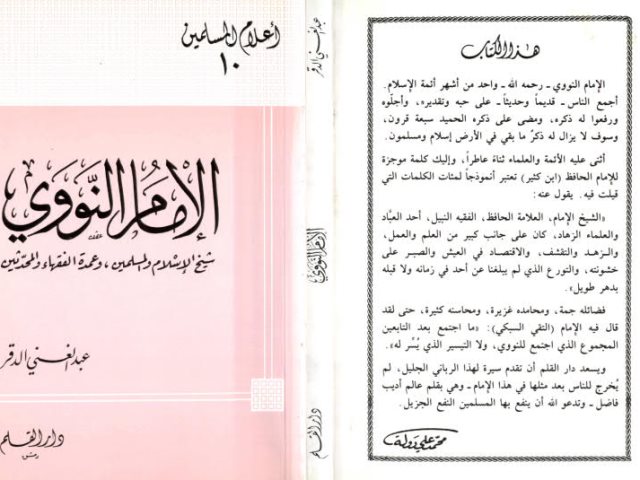 أعلام المسلمين
١٠
الإمام النووي
شيخ الإسلام والمسلمين، وعمدة الفقهاء والمحدثين
عبد الغني الدقر
دار القلم
دمشق
عبد الغني الدقر
الإمام النووي
دار القلم
هذا الكتاب
الإمام النووي ـ رحمه الله ـ واحد من أشهر أئمة الإسلام.
أجمع الناس ـ قديماً وحديثاً ـ على حبه وتقديره، وأجلّوه
ورفعوا له ذكره، ومضى على ذكره الحميد سبعة قرون،
وسوف لا يزال له ذكرٌ ما بقي في الأرض إسلام ومسلمون.
أثنى عليه الأئمة والعلماء ثناءً عاطراً، وإليك كلمة موجزة
للإمام الحافظ (ابن كثير) تعتبر أنموذجاً لمئات الكلمات التي
قيلت فيه. يقول عنه:
«الشيخ الإمام، العلامة الحافظ، الفقيه النبيل، أحد العبّاد
والعلماء الزهاد، كان على جانب كبير من العلم والعمل،
والزهد والتقشف، والاقتصاد في العيش والصبر على
خشونته، والتورع الذي لم يبلغنا عن أحد في زمانه ولا قبله
بدهر طويل».
فضائله جمة، ومحامده غزيرة، ومحاسنه كثيرة، حتى لقد
قال فيه الإمام (التقي السبكي): «ما اجتمع بعد التابعين
المجموع الذي اجتمع للنووي، ولا التيسير الذي يُسِّر له».
ويسعد دار القلم أن تقدم سيرة لهذا الرباني الجليل، لم
يُخرج للناس بعد مثلها في هذا الإمام ـ وهي بقلم عالم أديب
فاضل ـ وتدعو الله أن ينفع بها المسلمين النفع الجزيل.
محمد علي دولة